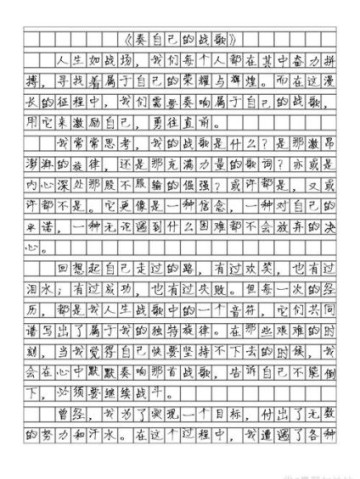 《奏自己的战歌》
人生如战场，我们每个人都在其中奋力拼
搏，寻找着属于自己的荣耀与辉煌。而在这漫
长的征程中，我们需要奏响属于自己的战歌，
用它来激励自己，勇往直前。
我常常思考，我的战歌是什么？是那激昂
澎湃的旋律，还是那充满力量的歌词？亦或是
内心深处那股不服输的倔强？或许都是，又或
许都不是。它更像是一种信念，一种对自己的
承诺，一种无论遇到什么困难都不会放弃的决
心。
回想起自己走过的路，有过欢笑，也有过
泪水；有过成功，也有过失败。但每一次的经
历，都是我人生战歌中的一个音符，它们共同
谱写出了属于我的独特旋律。在那些艰难的时
刻，当我觉得自己快要坚持不下去的时候，我
会在心中默默奏响那首战歌，告诉自己不能倒
下，必须要继续战斗。
曾经，我为了实现一个目标，付出了无数
的努力和汗水。在这个过程中，我遭遇了各种